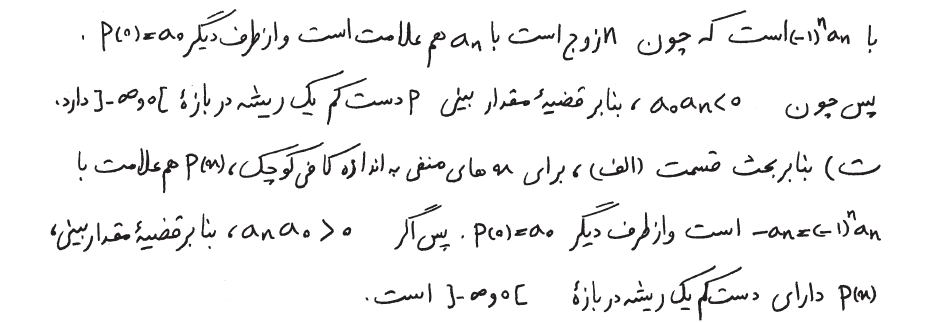 با (-1)ⁿaₙ است که چون n زوج است با aₙ هم علامت است و از طرف دیگر P(0)=a₀ .
پس چون a₀aₙ<0 ، بنابر قضیهٔ مقدار بینی P دست کم یک ریشه در بازهٔ ]-∞ و 0[ دارد.
ت) بنابر بحث قسمت (الف) ، برای x های منفی به اندازه کافی کوچک، P(x) هم علامت با
-aₙ=(-1)ⁿaₙ است و از طرف دیگر P(0)=a₀ . پس اگر aₙa₀>0 ، بنابر قضیهٔ مقدار بینی،
P(x) دارای دست کم یک ریشه در بازهٔ ]-∞ و 0[ است.